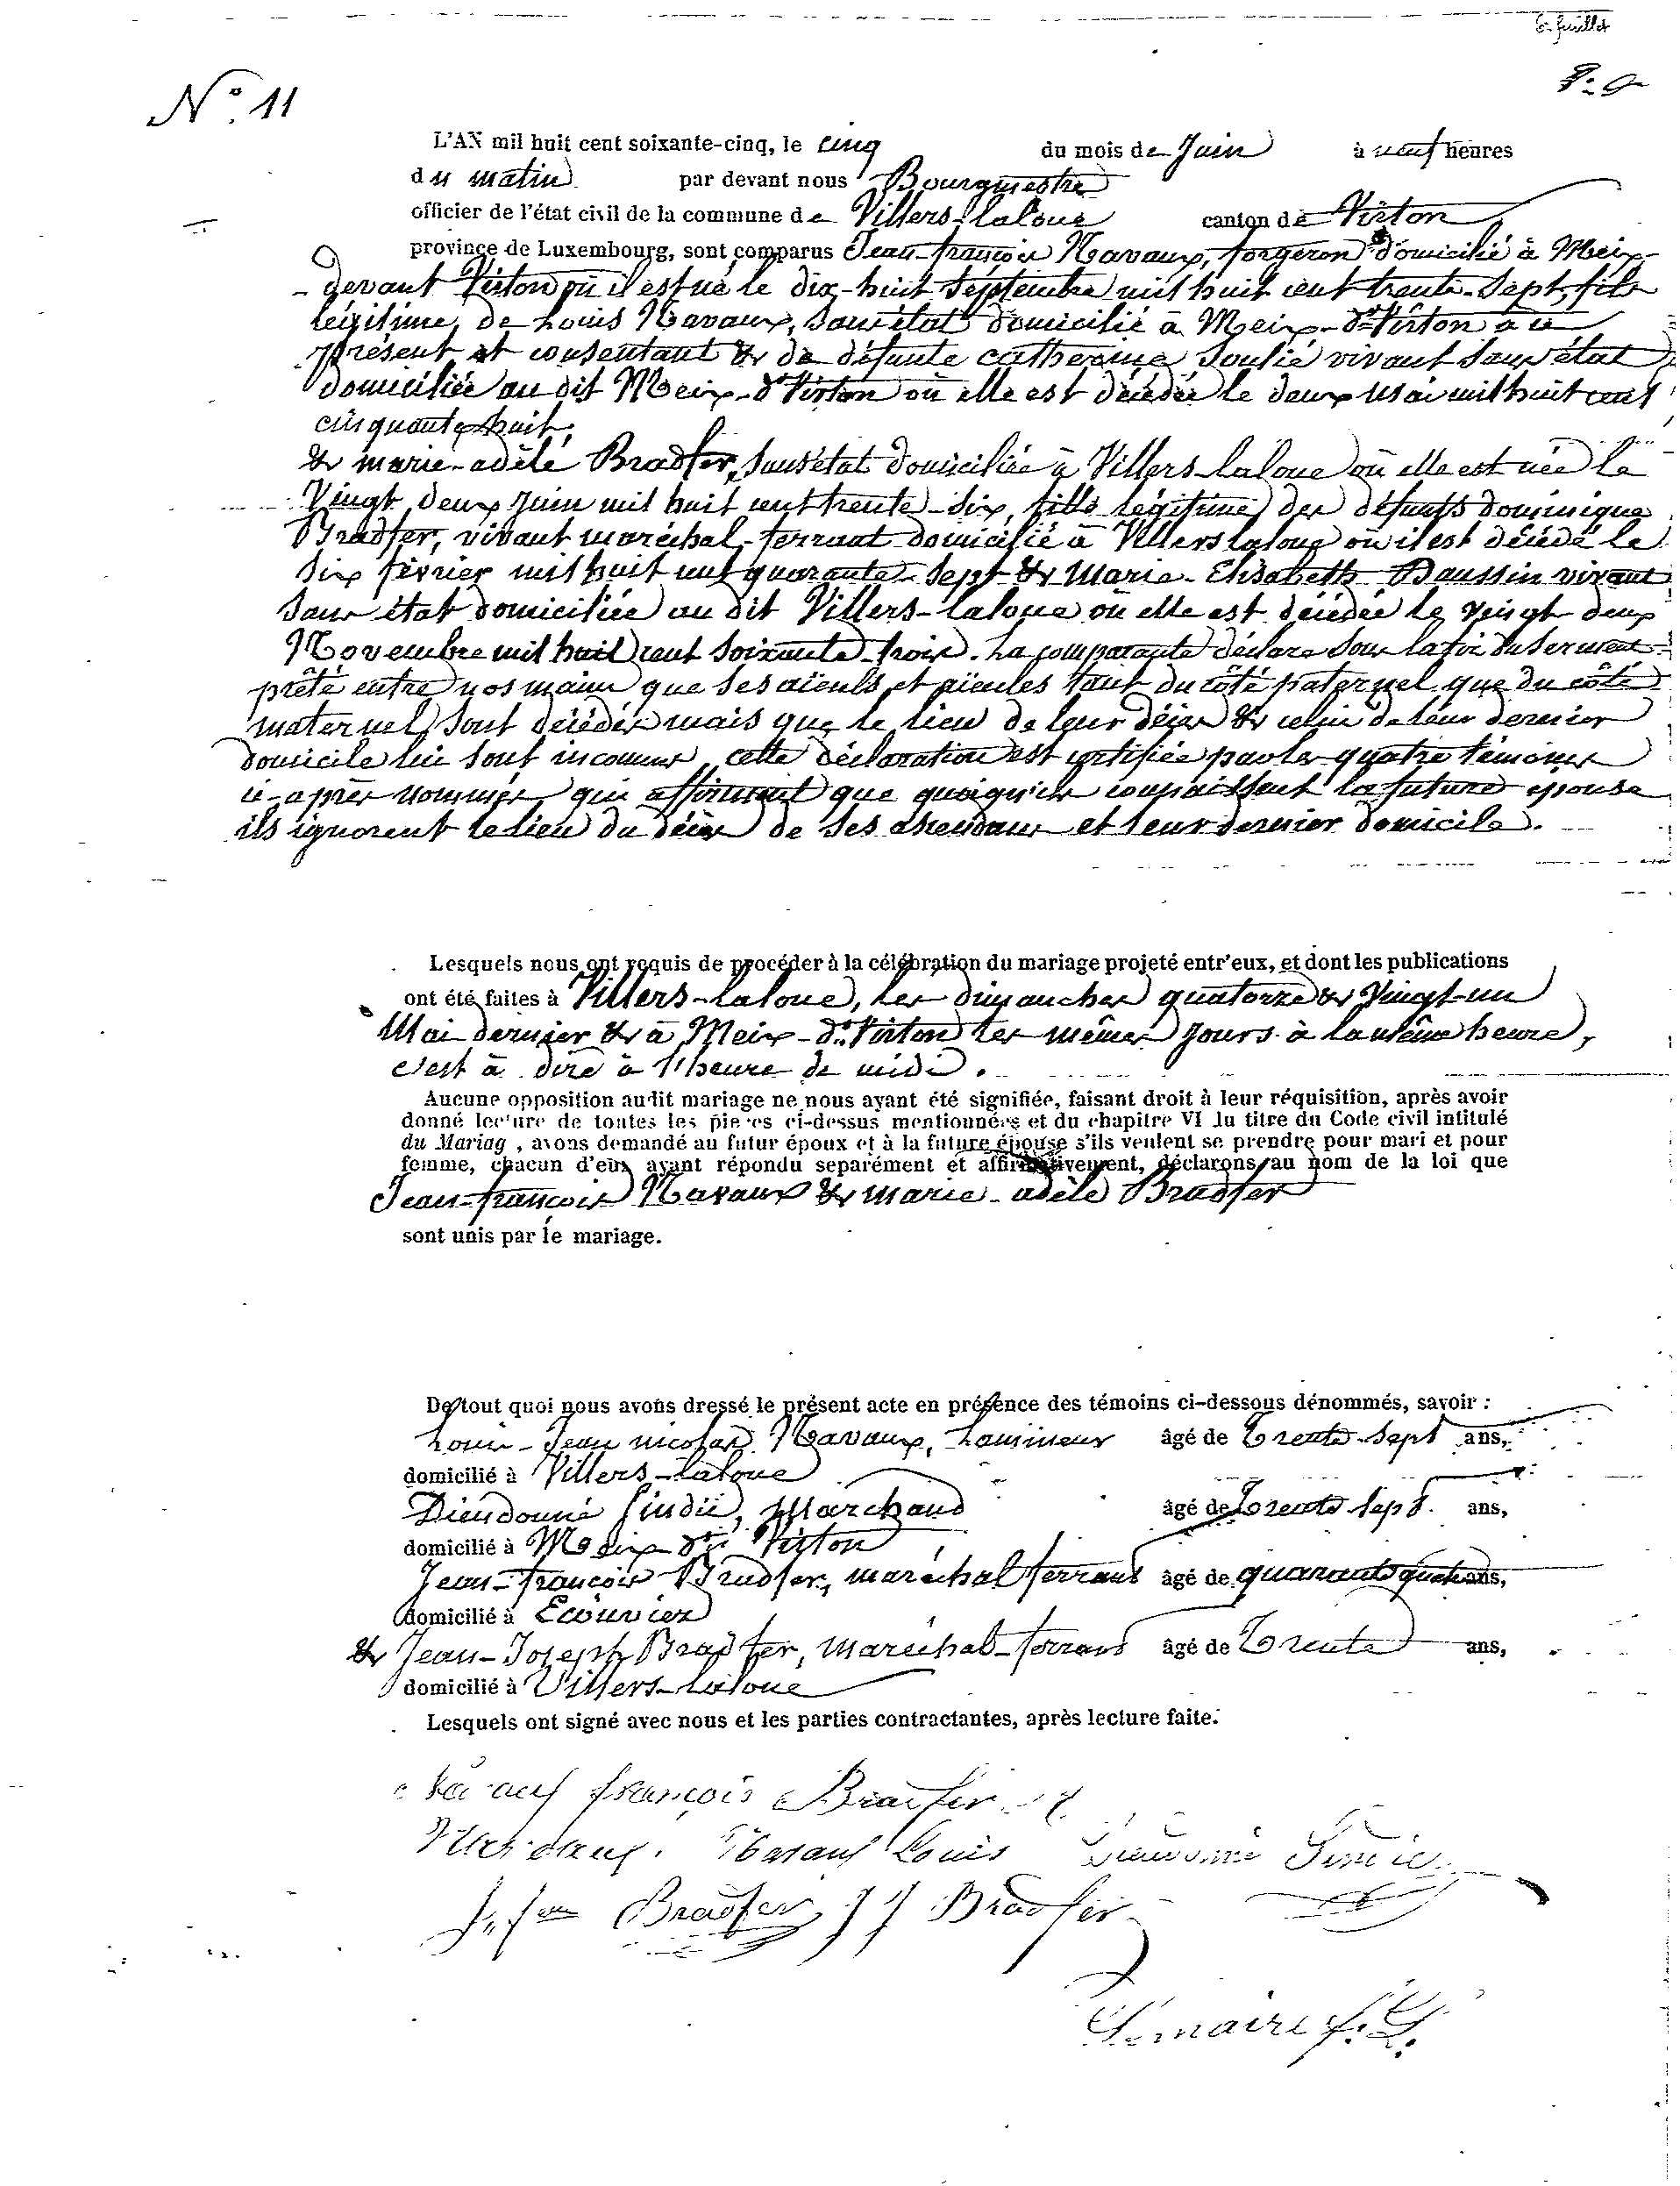 6e feuillet
N° 11
L'AN mil huit cent soixante-cinq, le cinq du mois de Juin à neuf heures
du matin par devant nous Bourgmestre
officier de l'état civil de la commune de Villers-laloue canton de Virton
province de Luxembourg, sont comparus Jean-françois Navaux, forgeron domicilié à Meix-
-devant Virton où il est né le dix-huit Septembre mil huit cent trente-Sept, fils
légitime de Louis Navaux, sans état domicilié à Meix-dt Virton à ce
présent et consentant & de défunte catherine Soulié vivant sans état
domiciliée au dit Meix-dt Virton où elle est décédée le deux Mai mil huit cent
cinquante huit,
& marie-adèle Bradfer, Sans état domiciliée à Villers-laloue où elle est née le
Vingt deux Juin mil huit cent trente-Six, fille légitime des défunts dominique
Bradfer, vivant maréchal-ferrant domicilié à Villers laloue où il est décédé le
Six février mil huit cent quarante-Sept & Marie-Elisabeth Daussin vivant
Sans état domiciliée au dit Villers-laloue où elle est décédée le vingt deux
Novembre mil huit cent Soixante-trois. La comparante déclare Sous la foi du Serment
prêté entre nos mains que Ses aïeuls et aïeules tant du côté paternel que du côté
maternel Sont décédés mais que le lieu de leur décès & celui de leur dernier
domicile lui Sont inconnus, cette déclaration est certifiée par les quatre témoins
ci-après nommés qui affirment que quoiqu'ils connaissent la future épouse
ils ignorent le lieu du décès de Ses ascendans et leur dernier domicile.
Lesquels nous ont requis de procéder à la célébration du mariage projeté entr'eux, et dont les publications
ont été faites à Villers-laloue, les dimanches quatorze & Vingt-un
Mai dernier & à Meix-dt Virton les mêmes Jours à la même heure,
c'est à dire à l'heure de midi.
Aucune opposition audit mariage ne nous ayant été signifiée, faisant droit à leur réquisition, après avoir
donné lecture de toutes les pièces ci-dessus mentionnées et du chapitre VI du titre du Code civil intitulé
du Mariag , avons demandé au futur époux et à la future épouse s'ils veulent se prendre pour mari et pour
femme, chacun d'eux ayant répondu separément et affirmativement, déclarons au nom de la loi que
Jean-françois Navaux & marie-adèle Bradfer
sont unis par le mariage.
De tout quoi nous avons dressé le présent acte en présence des témoins ci-dessous dénommés, savoir :
Louis-Jean nicolas Navaux, Lamineur âgé de Trente-Sept ans,
domicilié à Villers-laloue
Dieudonné Sindic, Marchand âgé de Trente Sept ans,
domicilié à Meix-dt Virton
Jean-françois Bradfer, maréchal ferrant âgé de quarante quatre ans,
domicilié à Ecouviez
& Jean-Joseph Bradfer, Maréchal-ferrant âgé de Trente ans,
domicilié à Villers-laloue
Lesquels ont signé avec nous et les parties contractantes, après lecture faite.
Navaux françois Bradfer
Navaux. Navaux Louis Dieudonné Sindic
Bradfer J J Bradfer
Lemaire